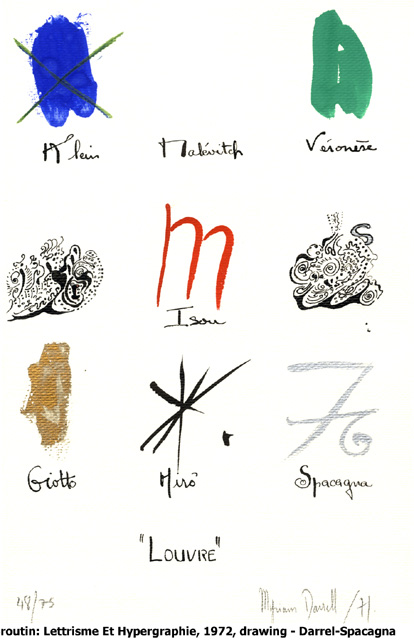 Klein Malévitch Véronèse
m
Isou
Giotto Miró Spacagna
"LOUVRE"
48/75 Myriam Darrell /71.
routin: Lettrisme Et Hypergraphie, 1972, drawing - Darrel-Spacagna